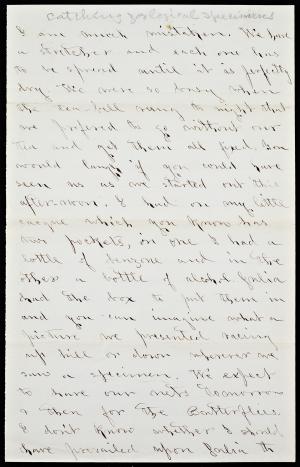 catching zoological specimens
I am much mistaken. We have
a stretcher and each one has
to be spread until it is perfectly
dry. We were so busy when
the tea-bell rang to-night that
we prefered to go without our
tea and get them all fixed. You
would laugh if you could have
seen us as we started out this
afternoon. I had on my little
sacque which you know has
two pockets, in one I had a
bottle of benzene and in the
other a bottle of alcohol. Julia
had the box to put them in
and you can imagine what a
picture we presented racing
up hill or down wherever we
saw a specimen. We expect
to have our nets tomorrow
& then for the Butterflies.
I don't know whether I should
have prevailed upon Julia to